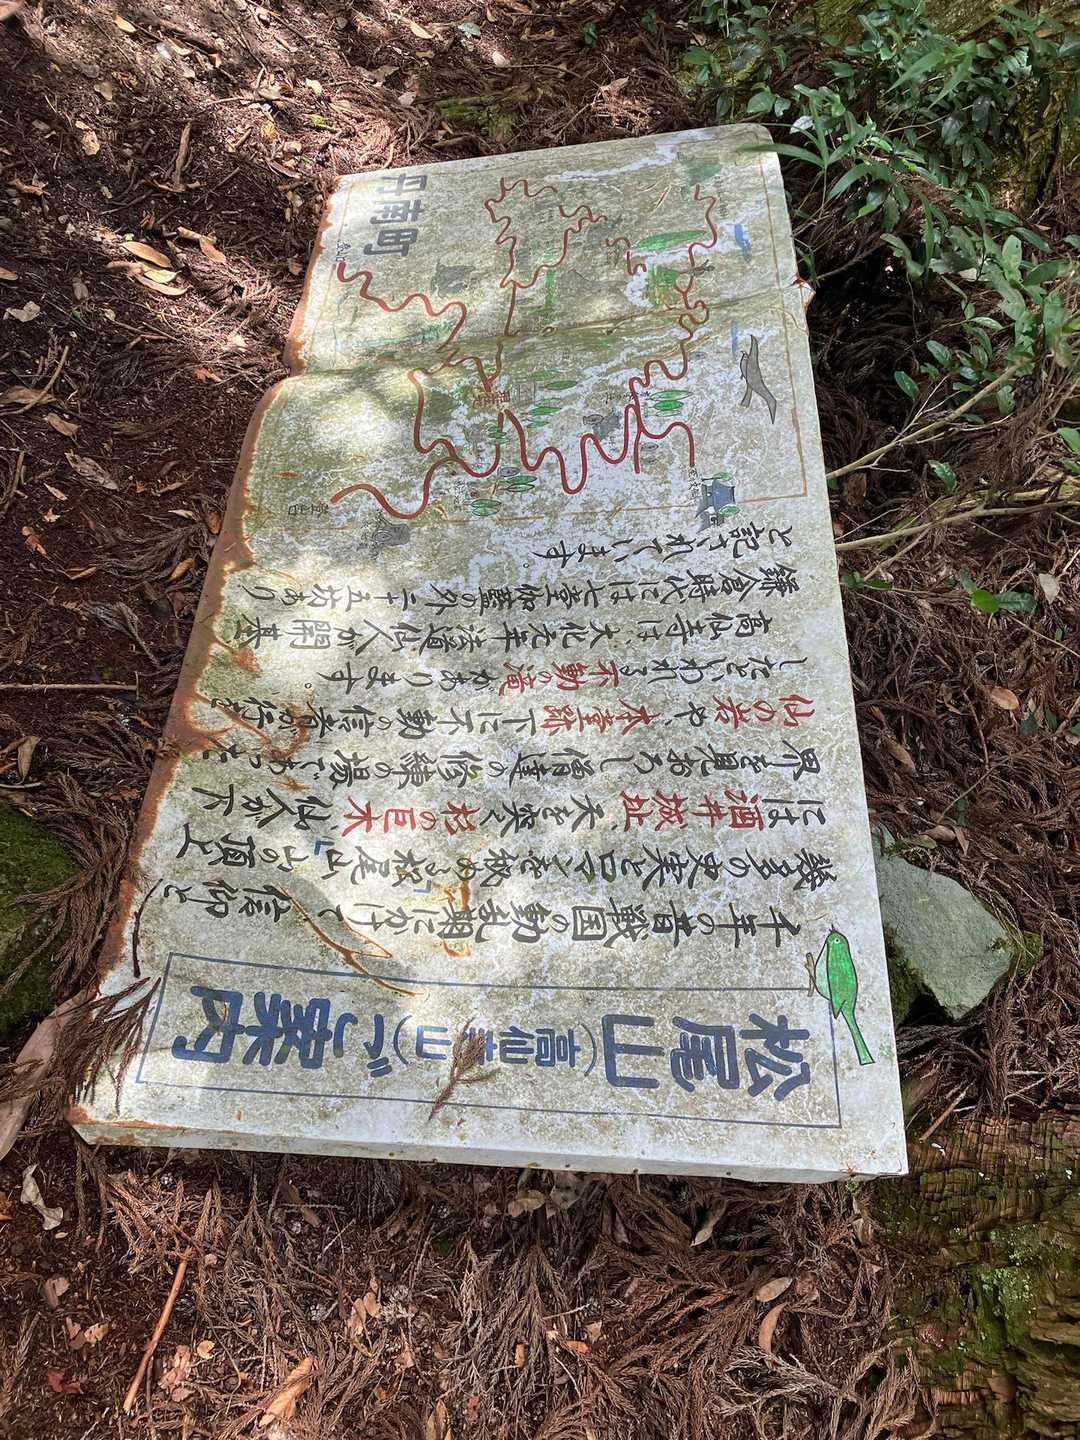 松尾山(高仙寺山)ご案内
千年の昔戦国の動乱期にかけて 信仰と
幾多の史実とロマンを秘める「松尾山」山の頂上
には酒井城趾、天を突く松の巨木、仙人が下
界を見おろし僧達の修練の場であった
仙の岩や、本堂跡下に不動の信者が行を
したといわれる不動の滝があります。
高仙寺は、大化元年法道仙人が開基
鎌倉時代には七堂伽藍の外二十五坊あり
と記されています。
丹南町